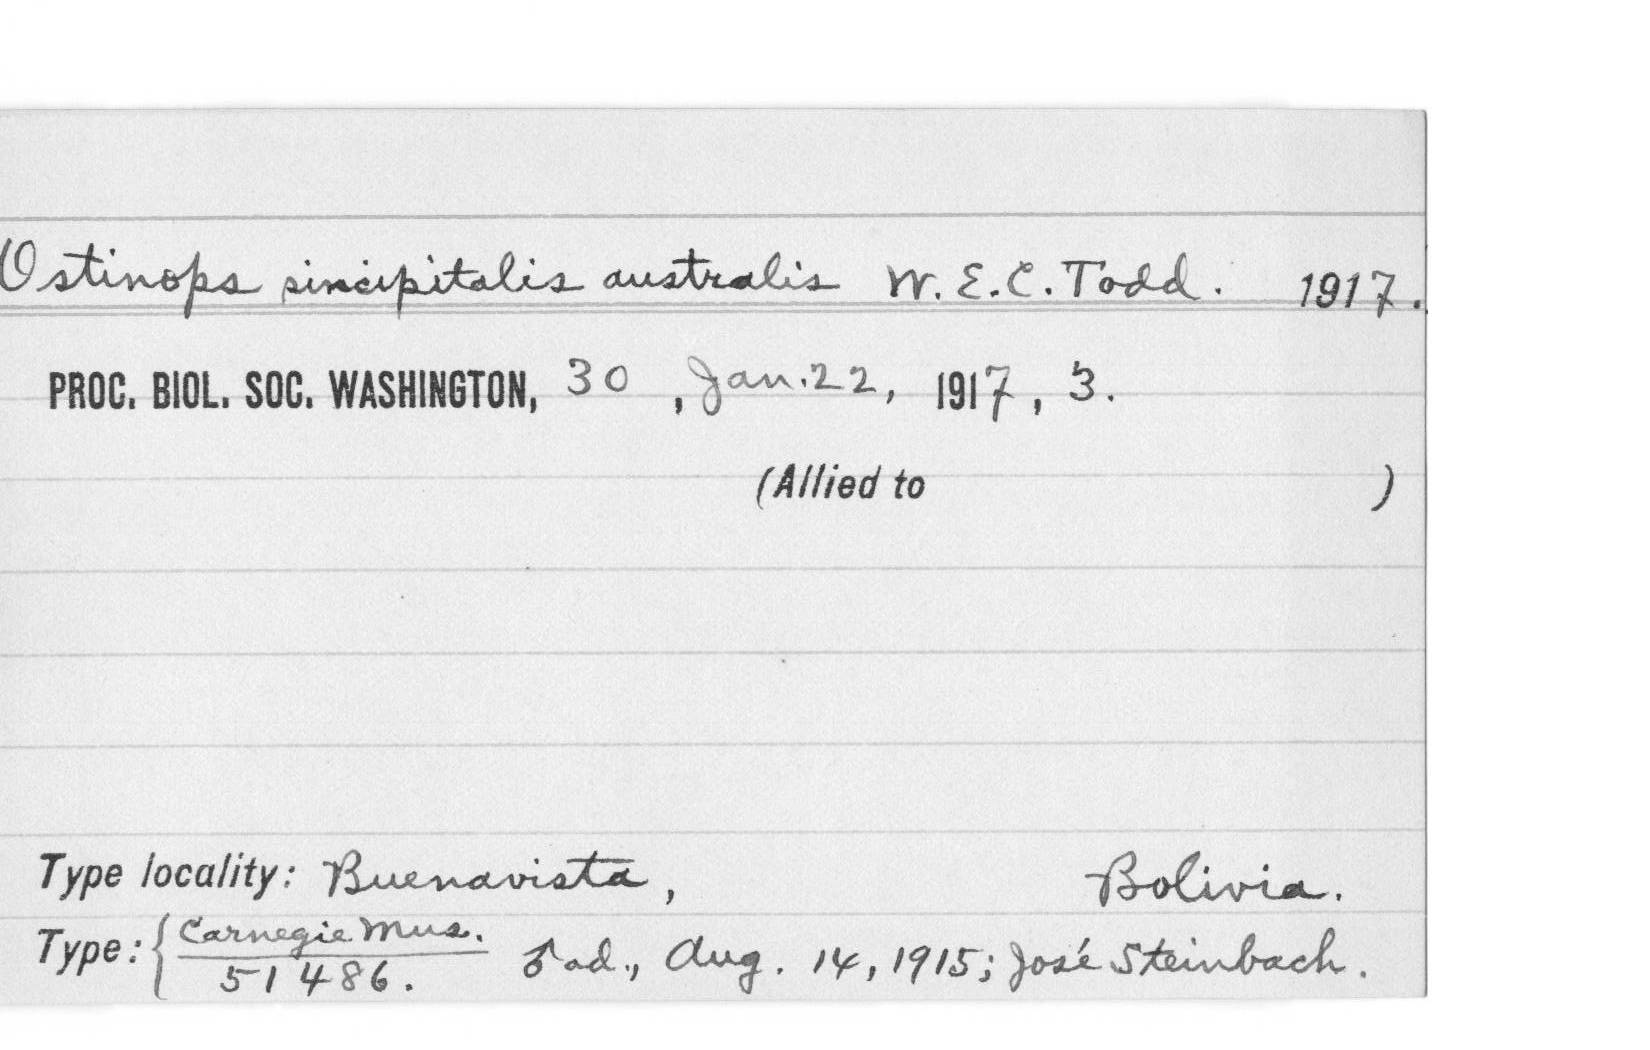 Ostinops sincipitalis australis W. E. C. Todd. 1917.
PROC. BIOL. SOC. WASHINGTON, 30 , Jan. 22, 1917, 3.
(Allied to )
Type locality: Buenavista, Bolivia.
Type: { Carnegie Mus.
51486. ♂ ad., Aug. 14, 1915; José Steinbach.